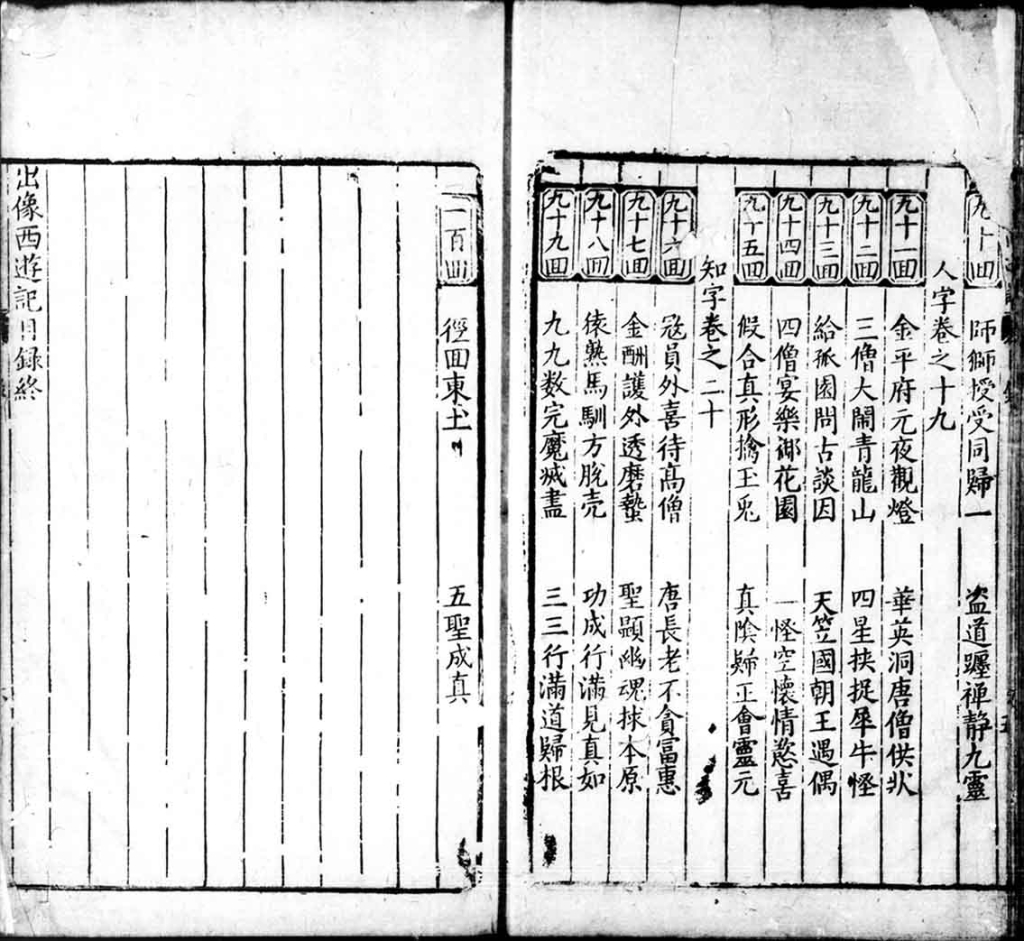 九十回 師獅授受同歸一 盗道纏禪静九靈
人字卷之十九
九十一回 金平府元夜觀燈 華英洞唐僧供狀
九十二回 三僧大鬧青龍山 四星挾捉犀牛怪
九十三回 給孤園問古談因 天竺國朝王遇偶
九十四回 四僧宴樂御花園 一怪空懷情慾喜
九十五回 假合真形擒玉兎 真陰歸正會靈元
知字卷之二十
九十六回 冦員外喜待高僧 唐長老不貪富惠
九十七回 金酬護外透磨蟄 聖顯幽魂捄本原
九十八回 猿熟馬馴方脫壳 功成行滿見真如
九十九回 九九数完魔滅盡 三三行滿道歸根
一百回 徑回東土 五聖成真
出像西遊記目録終